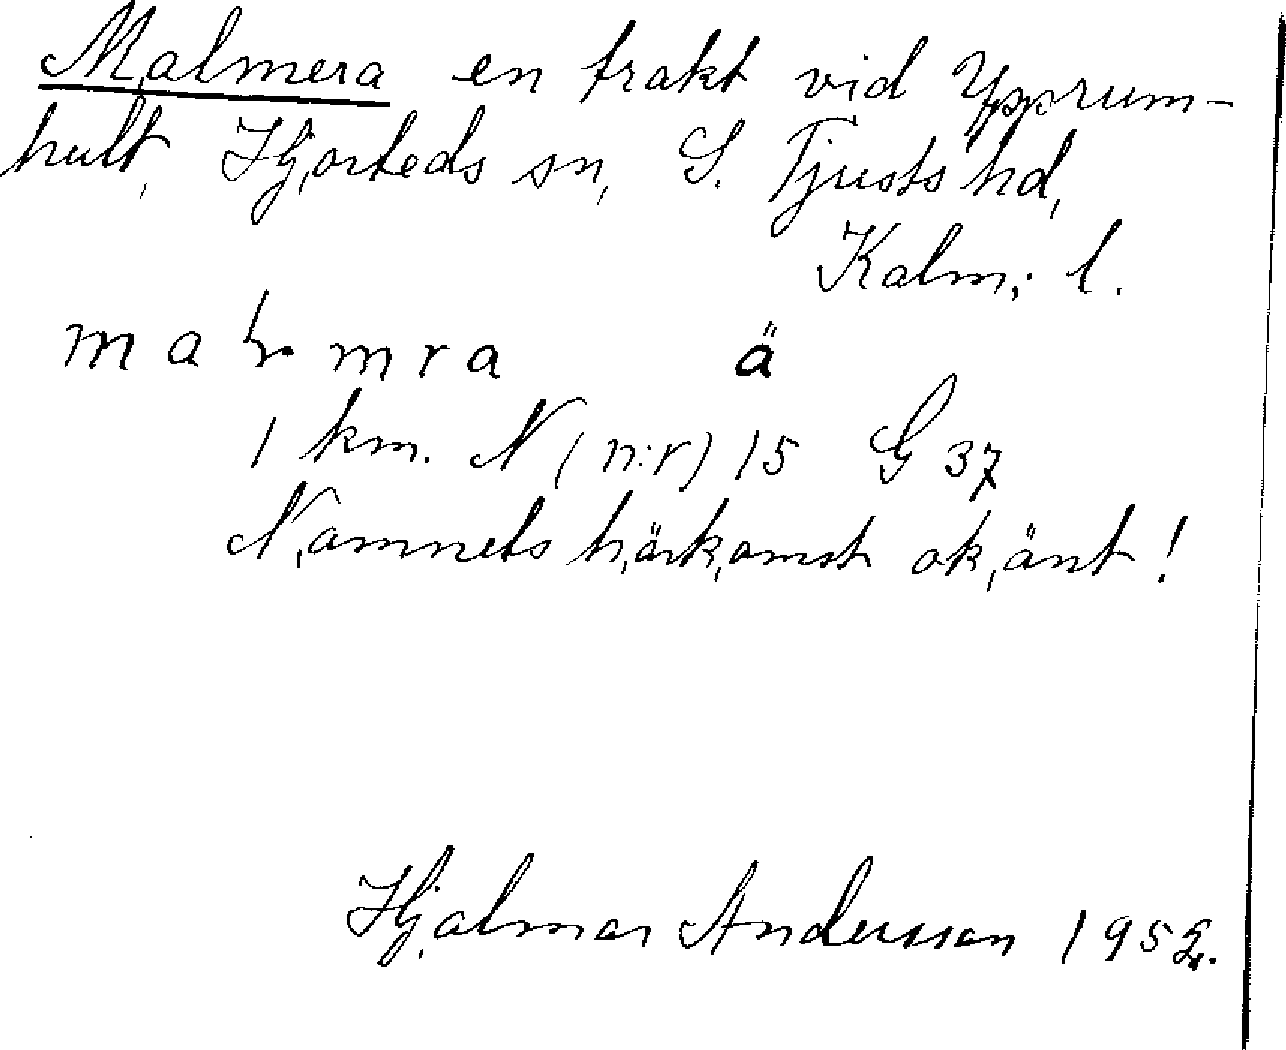 Malmera en trakt vid Ypprum-
hult, Hjorteds sn, S. Tjusts hd,
Kalm. l.
mra ä
1 km. N (n:r) 15 G 37
Namnets härkomst okänt!
Hjalmar Andersson 1952.